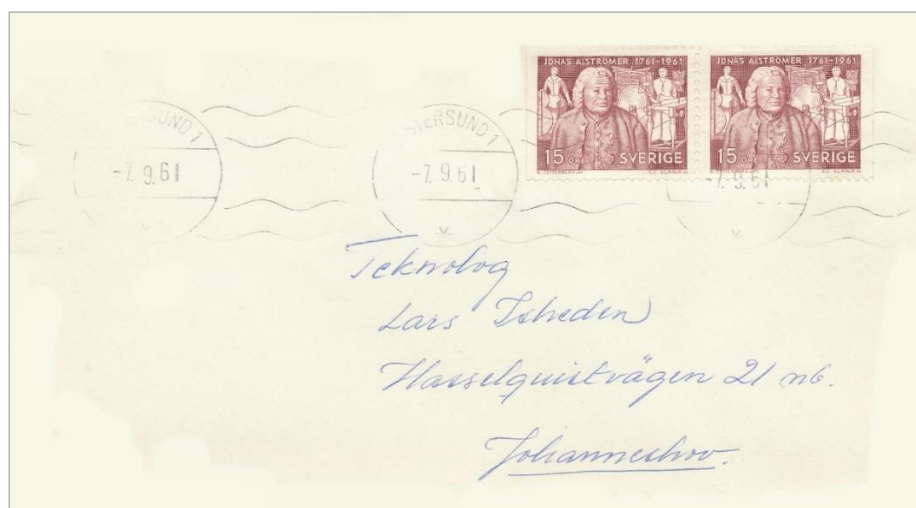 JONAS ALSTRÖMER 1761-1961
15 ÖRE SVERIGE
JONAS ALSTRÖMER 1761-1961
15 ÖRE SVERIGE
ERSUND 1
-7. 9. 61
STERSUND 1
-7. 9. 61
-7. 9. 61
Teknolog
Lars
Hasselquistvägen 21 nb.
Johanneshov.